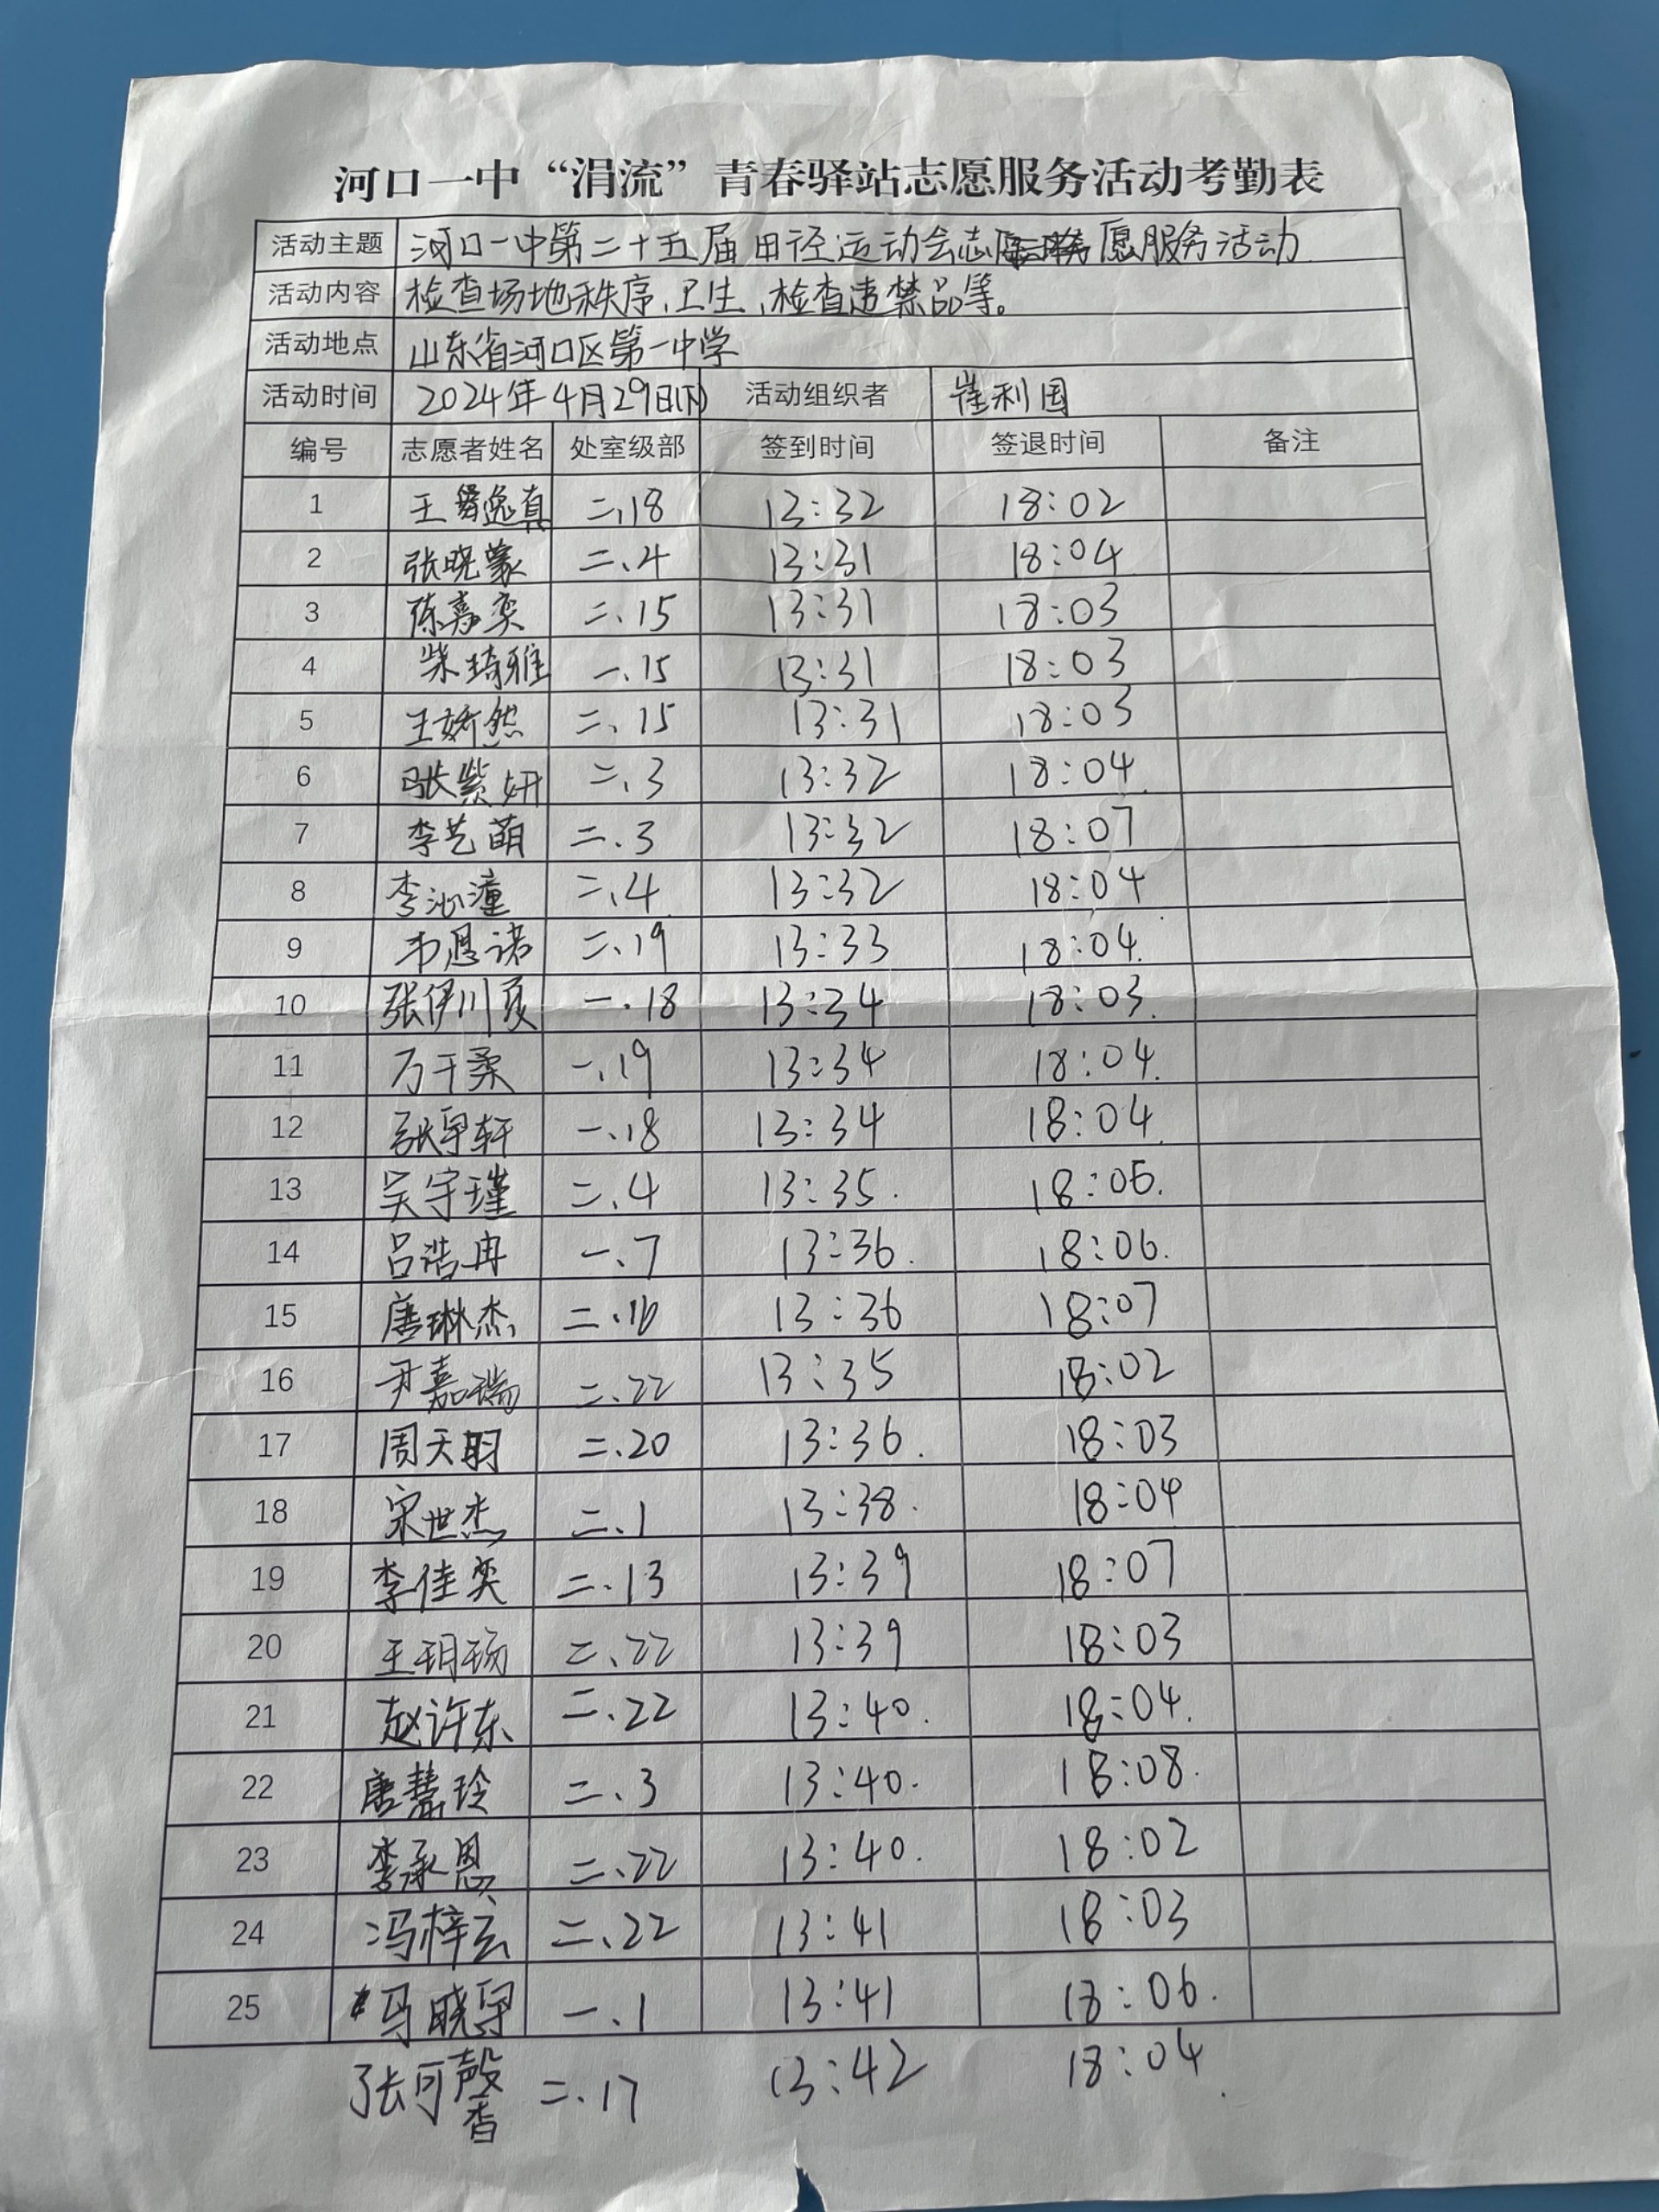 河口一中“涓流”青春驿站志愿服务活动考勤表
活动主题 河口一中第二十五届田径运动会志愿服务活动
活动内容 检查场地秩序、卫生、检查违禁品等。
活动地点 山东省河口区第一中学
活动时间 2024年4月29日(下) 活动组织者 崔利国
编号 志愿者姓名 处室级部 签到时间 签退时间 备注
1 王逸真 二、18 13:32 18:02
2 张晓蒙 二、4 13:31 18:04
3 陈嘉奕 二、15 13:31 18:03
4 柴琦雅 一、15 13:31 18:03
5 王娇然 二、15 13:31 18:03
6 张紫妍 二、3 13:32 18:04
7 李艺萌 二、3 13:32 18:07
8 李沁潼 二、4 13:32 18:04
9 韦恩诺 二、19 13:33 18:04
10 张伊川夏 一、18 13:34 18:03
11 万千柔 一、19 13:34 18:04
12 张军轩 一、18 13:34 18:04
13 吴宇瑾 二、4 13:35 18:06
14 吕浩冉 一、7 13:36 18:06
15 唐琳杰 二、16 13:36 18:07
16 尹嘉瑞 二、22 13:35 18:02
17 周天羽 二、20 13:36 18:03
18 宋世杰 二、1 13:38 18:04
19 李佳奕 二、13 13:39 18:07
20 王玥玚 二、22 13:39 18:03
21 赵许东 二、22 13:40 18:04
22 唐慧玲 二、3 13:40 18:08
23 李承恩 二、22 13:40 18:02
24 冯梓玄 二、22 13:41 18:03
25 马晓军 一、1 13:41 18:06
张可馨 二、17 13:42 18:04